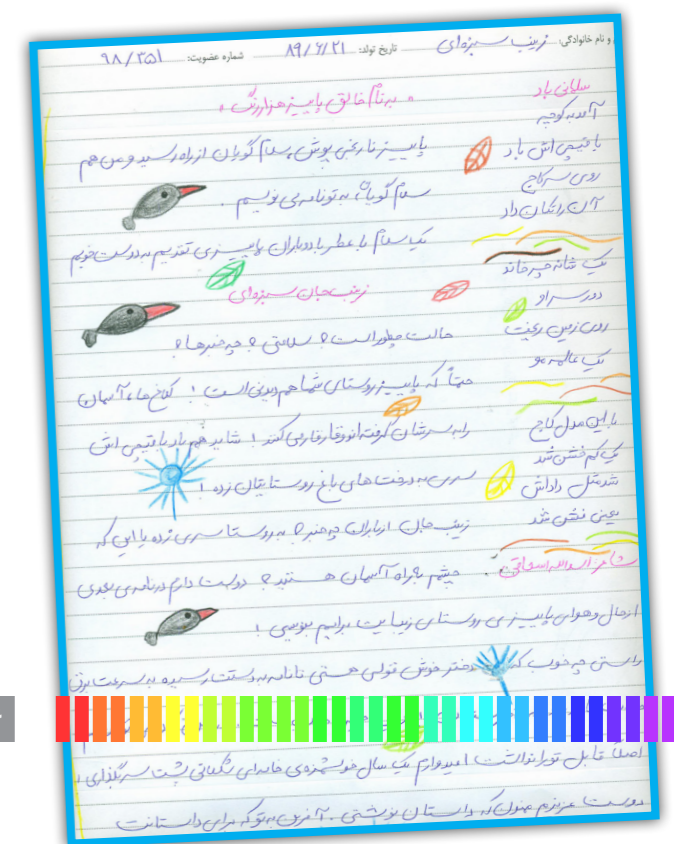 و نام خانوادگی: زینب سبزه‌ای تاریخ تولد: ۸۹/۶/۲۱ شماره عضویت: ۹۸/۳۵۱
« به نام خالق پاییز هزاررنگ »
پاییز نارنجی پوش، سلام گویان از راه رسید و من هم
سلام گویان، به تو نامه می نویسم.
یک سلام با عطر باد و باران پاییزی تقدیم به دوست خوبم
زینب جان سبزه‌ای
حالت چطور است؟ سلامتی؟ چه خبرها؟
حتماً که پاییز روستای شما هم دیدنی است! کلاغ ها، آسمان
را به سرشان گرفته‌اند و قارقار می کنند! شاید هم باد با قیچی اش
سری به درخت های باغ روستایتان زده!
زینب جان از باران چه خبر؟ به روستا سری زده یا این که
چشم به راه آسمان هستید؟ دوست دارم در نامه‌ی بعدی
از حال و هوای پاییزی روستای زیبایت برایم بنویسی!
راستی چه خوب که دختر خوش قولی هستی تا نامه به دستت رسیده به سرعت برق
اصلا قابل تو را نداشت! امیدوارم یک سال خوشمزه‌ی خاله‌ای شگفتی پشت سر بگذاری!
دوست عزیزم ممنون که داستان نوشتی. آفرین به تو که برای داستانت
سلمانی باد
آمد به کوچه
با قیچی اش باد
روی سر کاج
آن را تکان داد
یک شانه چرخاند
دور سر او
روی زمین ریخت
یک عالمه مو
با این مدل کاج
یک کم فشن شد
شد مثل داداش
یعنی خفن شد
شاعر: اسدالله اسحاقی